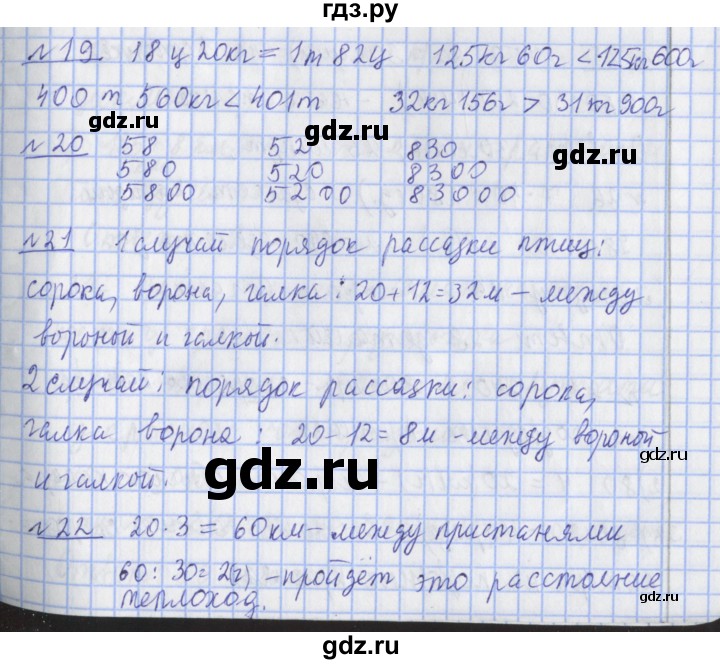 гдз.ру
№19 18 ц 20кг = 1т 82ц 125кг 60г < 125кг 600г
400 т 560кг < 401т 32кг 156г > 31кг 900г
gdz.ru gdz.ru
№20 58 52 830
580 520 8300
5800 5200 83000
gdz.ru gdz.ru
№21 1 случай порядок рассадки птиц:
сорока, ворона, галка: 20+12=32м – между
вороной и галкой.
2 случай: порядок рассадки: сорока,
галка ворона: 20-12=8м -между вороной
и галкой.
gdz.ru gdz.ru
№22 20·3 = 60км – между пристанями
60:30=2(ч) – пройдёт это расстояние
теплоход.
gdz.ru
gdz.ru